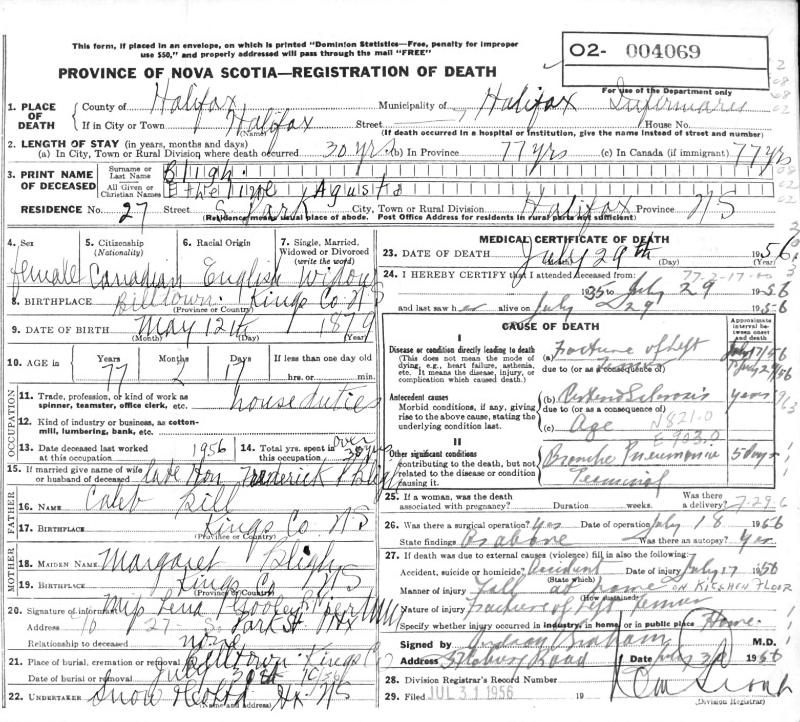 This form, if placed in an envelope, on which is printed "Dominion Statistics—Free, penalty for improper
use $50," and properly addressed will pass through the mail "FREE"
O2- 004069
For use of the Department only
PROVINCE OF NOVA SCOTIA—REGISTRATION OF DEATH
1. PLACE OF DEATH { County of Halifax Municipality of Halifax
If in City or Town Halifax Street House No.
(Name) (If death occurred in a hospital or institution, give the name instead of street and number)
2. LENGTH OF STAY (in years, months and days)
(a) In City, Town or Rural Division where death occurred 30 yrs (b) In Province 77 yrs (c) In Canada (if immigrant) 77 yrs
3. PRINT NAME OF DECEASED { Surname or Last Name Bligh
All Given or Christian Names Agusta
RESIDENCE No. 27 Street S. Park City, Town or Rural Division Halifax Province NS
(Residence means usual place of abode. Post Office Address for residents in rural parts not sufficient)
4. Sex 5. Citizenship (Nationality) 6. Racial Origin 7. Single, Married, Widowed or Divorced (write the word)
female Canadian English Widow
8. BIRTHPLACE Billtown Kings Co. NS
(Province or Country)
9. DATE OF BIRTH May 12th 1879
(Month) (Day) (Year)
10. AGE in Years Months Days If less than one day old
77 2 17 hrs. or min.
OCCUPATION
11. Trade, profession, or kind of work as spinner, teamster, office clerk, etc. house duties
12. Kind of industry or business, as cotton-mill, lumbering, bank, etc.
13. Date deceased last worked at this occupation 1956 14. Total yrs. spent in this occupation over 30 yrs
15. If married give name of wife or husband of deceased late Hon Frederick P Bligh
FATHER
16. Name Caleb Bill
17. Birthplace Kings Co NS
(Province or Country)
MOTHER
18. Maiden Name Margaret Bligh
19. Birthplace Kings Co NS
(Province or Country)
20. Signature of informant Lena
Address 27 S. Park St Hfx
Relationship to deceased none
21. Place of burial, cremation or removal Billtown Kings Co
Date of burial or removal July 1956
22. UNDERTAKER Snow & Co Ltd Hx. NS
(Name and address)
MEDICAL CERTIFICATE OF DEATH
23. DATE OF DEATH July 29th 1956
(Month) (Day) (Year)
24. I HEREBY CERTIFY that I attended deceased from:
77-2-17-00
1935 to July 29 1956
and last saw her alive on July 29 1956
CAUSE OF DEATH
Approximate interval between onset and death
I
Disease or condition directly leading to death (a) Fracture of Left
(This does not mean the mode of dying, e.g., heart failure, asthenia, etc. It means the disease, injury, or complication which caused death.)
due to (or as a consequence of)
July 17/56
to July 29/56
Antecedent causes (b) years
Morbid conditions, if any, giving rise to the above cause, stating the underlying condition last.
due to (or as a consequence of)
(c) Age N821.0
E903.0
II
Other significant conditions Broncho Pneumonia 5 days
contributing to the death, but not related to the disease or condition causing it. Terminal
25. If a woman, was the death associated with pregnancy? Duration weeks. Was there a delivery? 7-29-6
26. Was there a surgical operation? yes Date of operation July 18 1956
State findings As above Was there an autopsy? Yes
27. If death was due to external causes (violence) fill in also the following:
Accident, suicide or homicide? Accident Date of injury July 17 1956
(State which)
Manner of injury Fall at home ON KITCHEN FLOOR
(How sustained)
Nature of injury Fracture of left femur
Specify whether injury occurred in industry, in home, or in public place Home
Signed by Graham M.D.
Address Road Date July 30 1956
28. Division Registrar's Record Number
29. Filed JUL 31 1956 19
(Division Registrar)